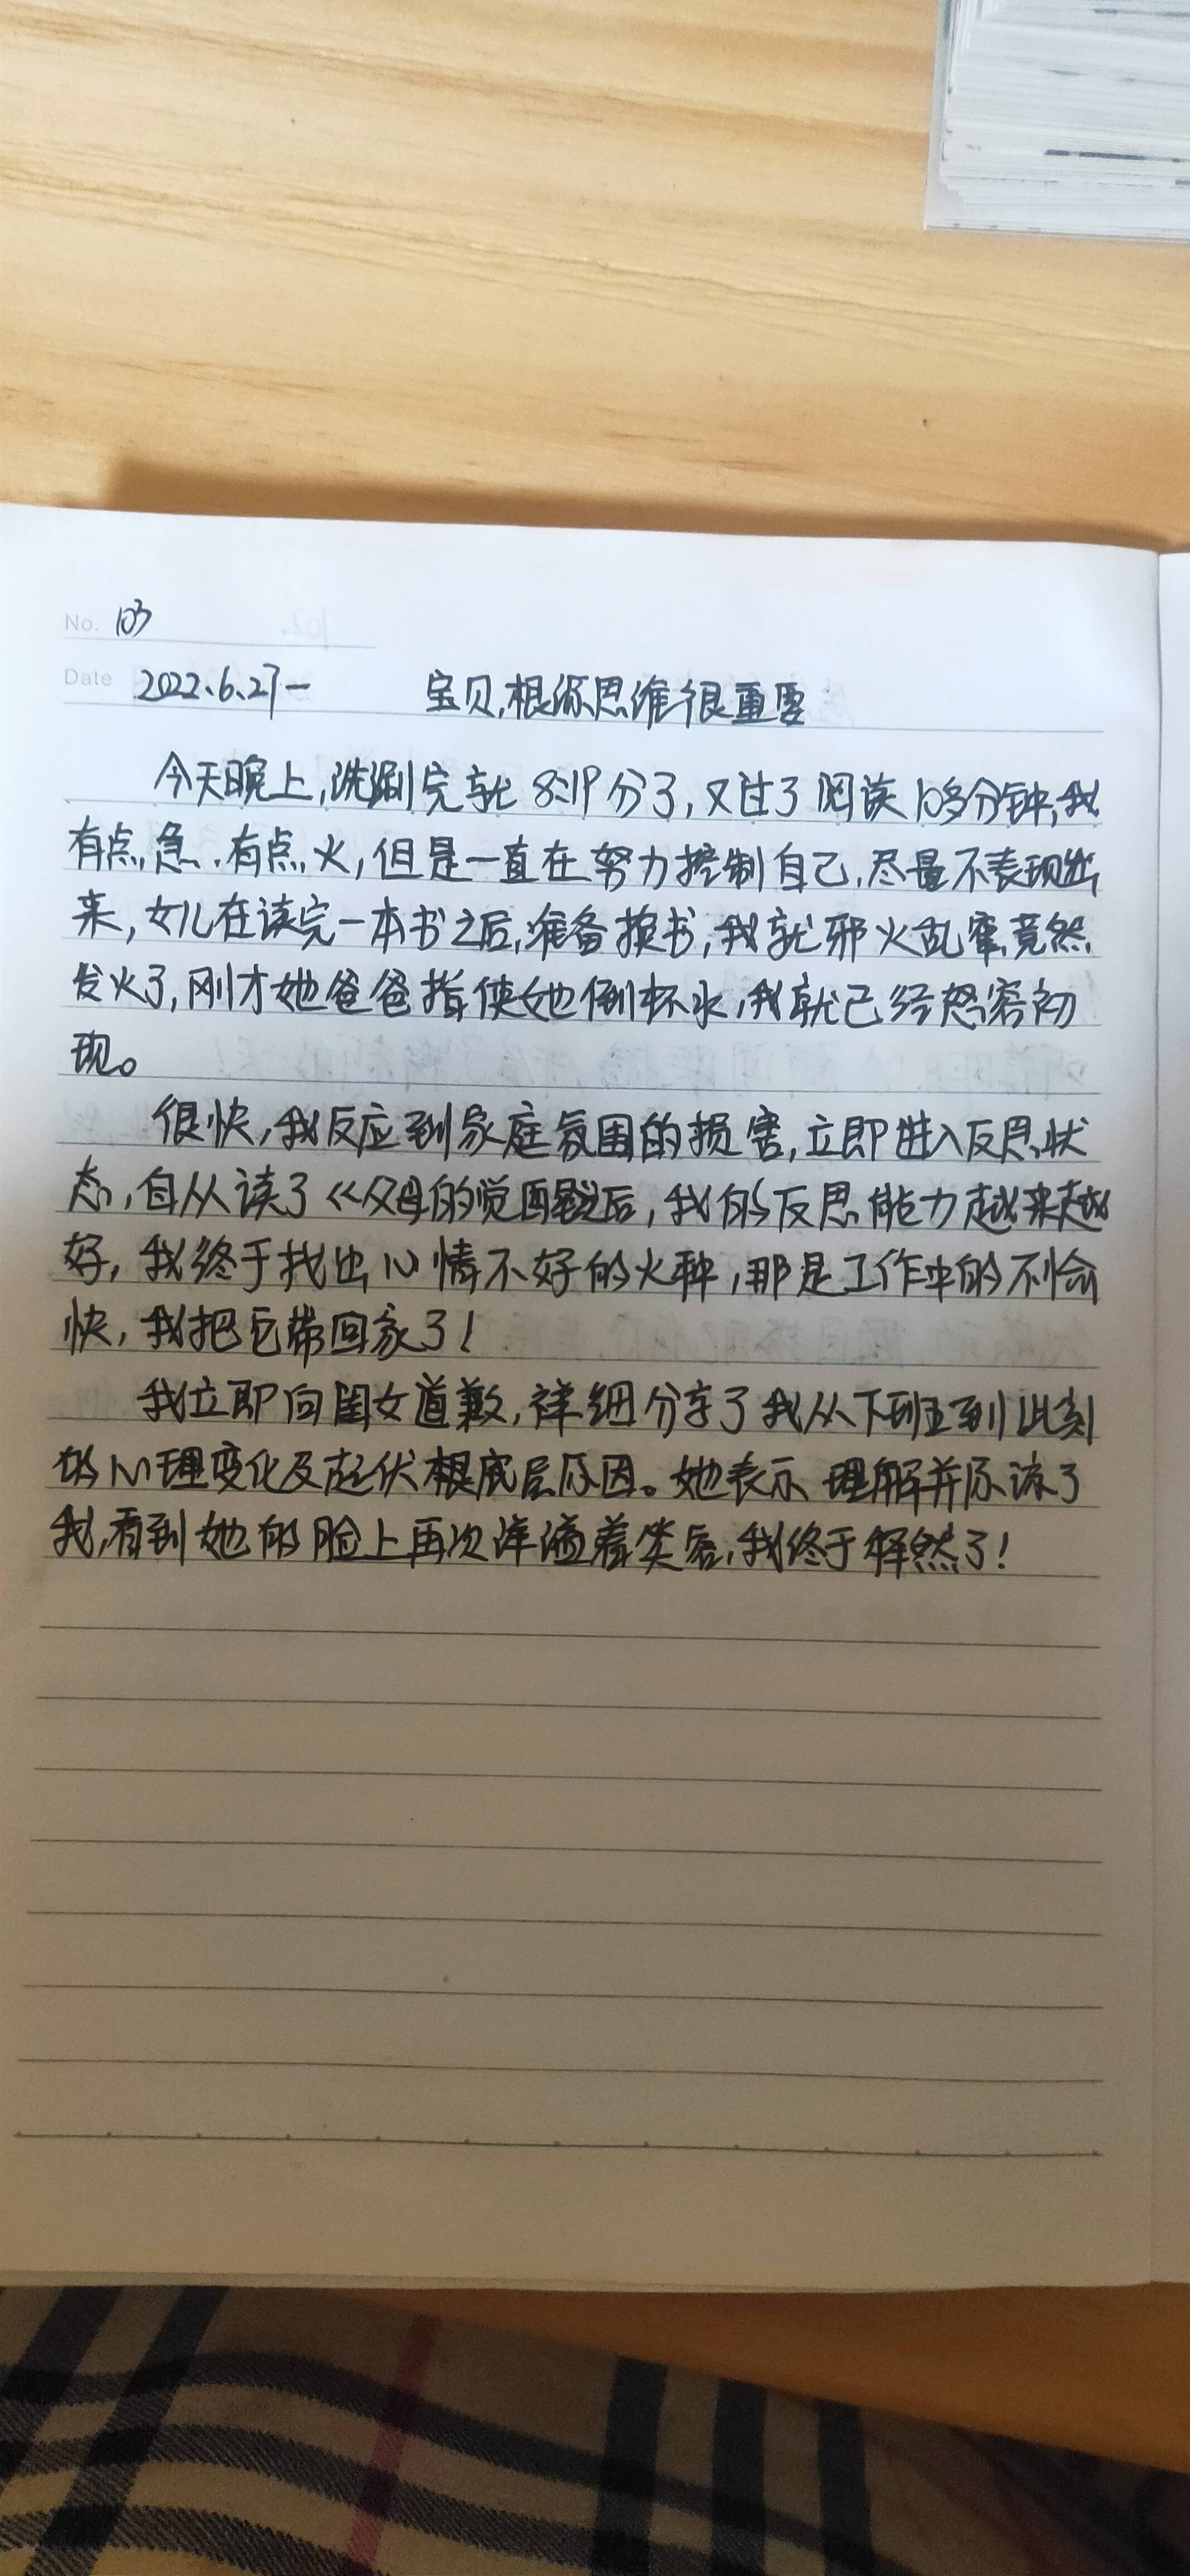 No. 103
Date 2022.6.27一 宝贝,根源思维很重要
今天晚上,洗涮完就8:19分了,又过了阅读10多分钟,我
有点急.有点火,但是一直在努力控制自己,尽量不表现出
来,女儿在读完一本书之后,准备换书,我就邪火乱窜,竟然
发火了,刚才她爸爸指使她倒杯水,我就已经怒容初
现。
很快,我反应到家庭氛围的损害,立即进入反思状
态,自从读了《父母的觉醒》后,我的反思能力越来越
好,我终于找出心情不好的火种,那是工作中的不愉
快,我把它带回家了!
我立即向闺女道歉,详细分享了我从下班到此刻
的心理变化及起伏根底层原因。她表示理解并原谅了
我,看到她的脸上再次洋溢着笑容,我终于释然了!